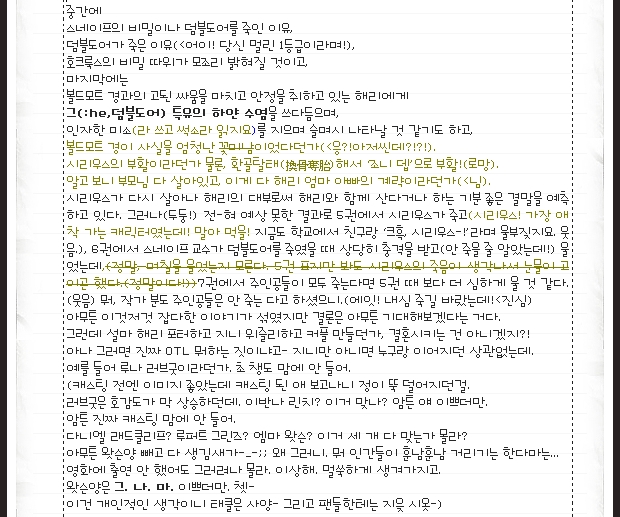 중간에
스네이프의 비밀이나 덤블도어를 죽인 이유,
덤블도어가 죽은 이유(<어이! 당신 멀린 1등급이라며!),
호크룩스의 비밀 따위가 모조리 밝혀질 것이고,
마지막에는
볼드모트 경과의 고된 싸움을 마치고 안정을 취하고 있는 해리에게
그(:he,덤블도어) 특유의 하얀 수염을 쓰다듬으며,
인자한 미소(라 쓰고 썩소라 읽지요)를 지으며 슬며시 나타날 것 같기도 하고,
볼드모트 경이 사실을 엄청난 꽃미남이었다던가(<응?!아저씬데?!?!).
시리우스의 부활이라던가 물론, 환골탈태(換骨奪胎)해서 '조니 뎁'으로 부활!(로망).
알고 보니 부모님 다 살아있고, 이게 다 해리 엄마 아빠의 계략이라던가(<님).
시리우스가 다시 살아나 해리의 대부로써 해리와 함께 산다거나 하는 기분 좋은 결말을 예측
하고 있다. 그러나(두둥!) 전-혀 예상 못한 결과로 5권에서 시리우스가 죽고(시리우스! 가장 애
착 가는 캐릭터였는데!! 말아 먹을! 지금도 학교에서 친구랑 '크흑, 시리우스-!'라며 울부짓지요. 웃
음.), 6권에서 스네이프 교수가 덤블도어를 죽였을 때 상당히 충격을 받고(안 죽을 줄 알았는데!!) 울
었는데,(정말, 며칠을 울었는지 모른다. 5권 표지만 봐도 시리우스의 죽음이 생각나서 눈물이 고
이곤 했다.(정말이다!)) 7권에서 주인공들이 모두 죽는다면 5권 때 보다 더 심하게 울 것 같다.
(웃음) 뭐, 작가 분도 주인공들은 안 죽는 다고 하셨으니.(에잇! 내심 죽길 바랐는데!<진심)
아무튼 이것저것 잡다한 이야기가 섞였지만 결론은 아무튼 기대해보겠다는 거다.
그런데 설마 해리 포터하고 지니 위즐리하고 커플 만들던가, 결혼시키는 건 아니겠지?!
아나 그러면 진짜 OTL 뭐하는 짓이냐고- 지니만 아니면 누구랑 이어지던 상관없는데.
예를 들어 루나 러브굿이라던가. 초 챙도 맘에 안 들어.
(캐스팅 전엔 이미지 좋았는데 캐스팅 된 애 보고나니 정이 뚝 덜어지던걸.
러브굿은 호감도가 막 상승하던데. 이반나 린치? 이거 맞나? 암튼 얘 이쁘더만.
암튼 진짜 캐스팅 맘에 안 들어.
다니엘 래드클리프? 루퍼트 그린즈? 엠마 왓슨? 이거 세 개 다 맞는가 몰라?
아무튼 왓슨양 빼고 다 생김새가-_-;; 왜 그러니. 뭐 인간들이 훈남훈남 거리기는 한다마는...
영화에 출연 안 했어도 그러려나 몰라. 이상해. 멀쑥하게 생겨가지고.
왓슨양은 그. 나. 마. 이쁘더만. 쳇-
이건 개인적인 생각이니 태클은 사양- 그리고 팬들한테는 지읒 시옷-)